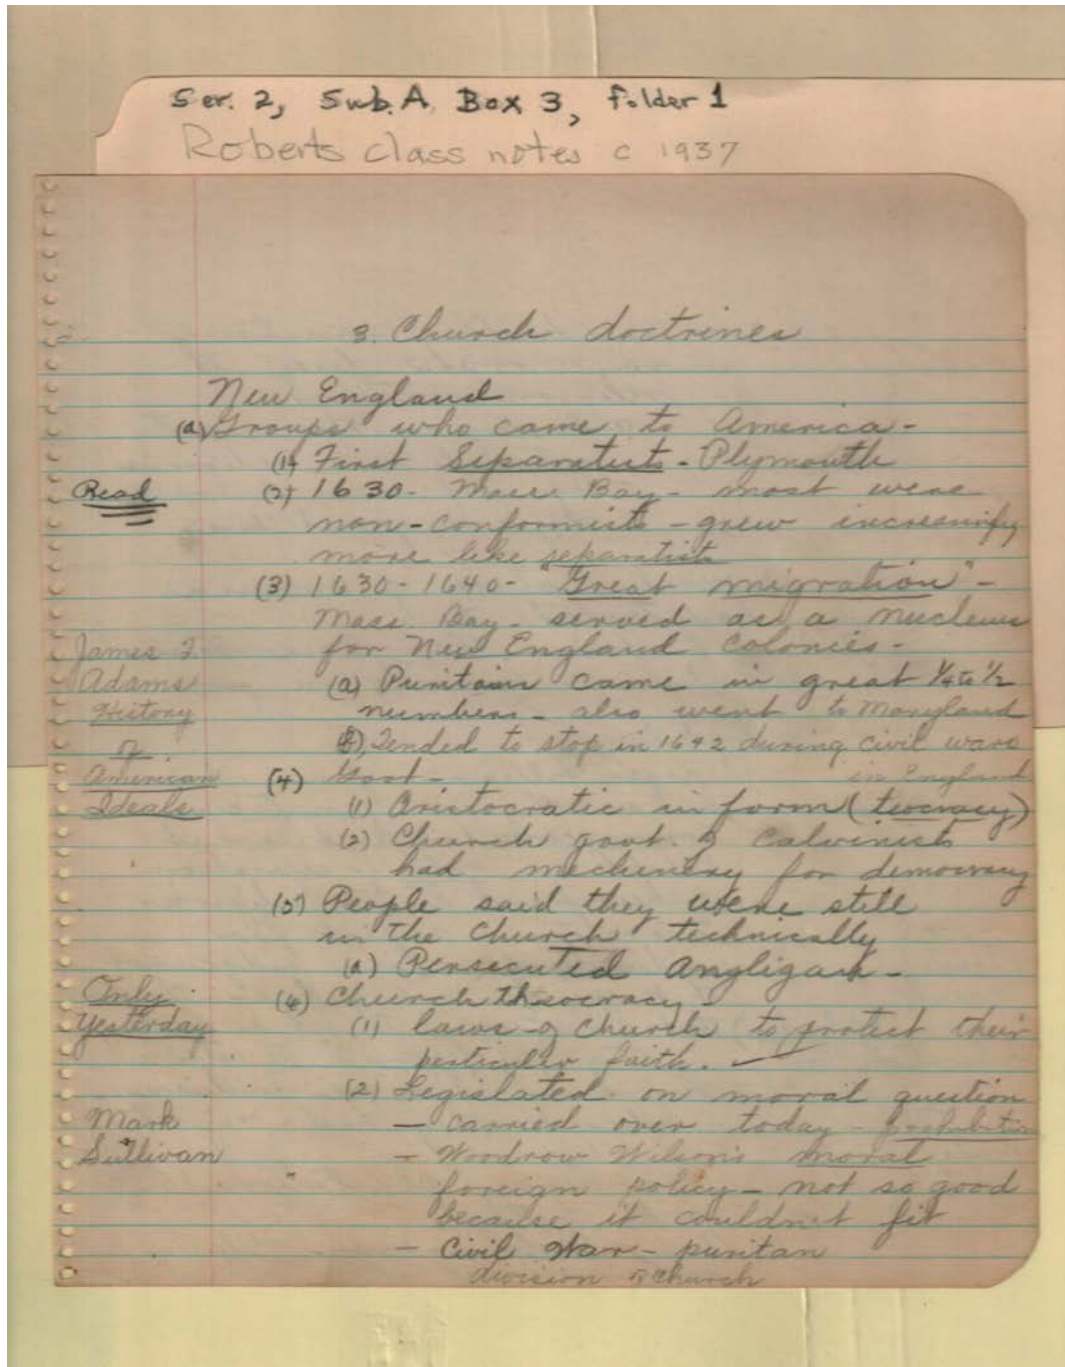 Ser. 2, Sub. A Box 3, folder 1
Roberts class notes c 1937
3. Church doctrines
New England
(a) Groups who came to America -
(1) First Separatists - Plymouth
Read
(2) 1630 - Mass. Bay - most were
non-conformists - grew increasinfy
more like separatists
(3) 1630 - 1640 - "Great migration" -
Mass. Bay - served as a nucleus
for New England Colonies -
(a) Puritains came in great 1/4 to 1/2
numbers - also went to Maryland
(b) Tended to stop in 1642 during civil wars
in England
James T.
Adams
History
of
American
Ideals
(4) Govt -
(1) Aristocratic in form (teocracy)
(2) Church govt. of Calvinists
had mechinery for democracy
(5) People said they were still
in the Church technically
(a) Persecuted Angligan -
Only
Yesterday
(6) Church theocracy -
(1) laws of Church to protect their
perticuler faith.
(2) Legislated on moral question
- carried over today prohibition
Mark
Sullivan
- Woodrow Wilson's moral
foreign policy - not so good
because it couldn't fit
- Civil War - puritan
division of Church